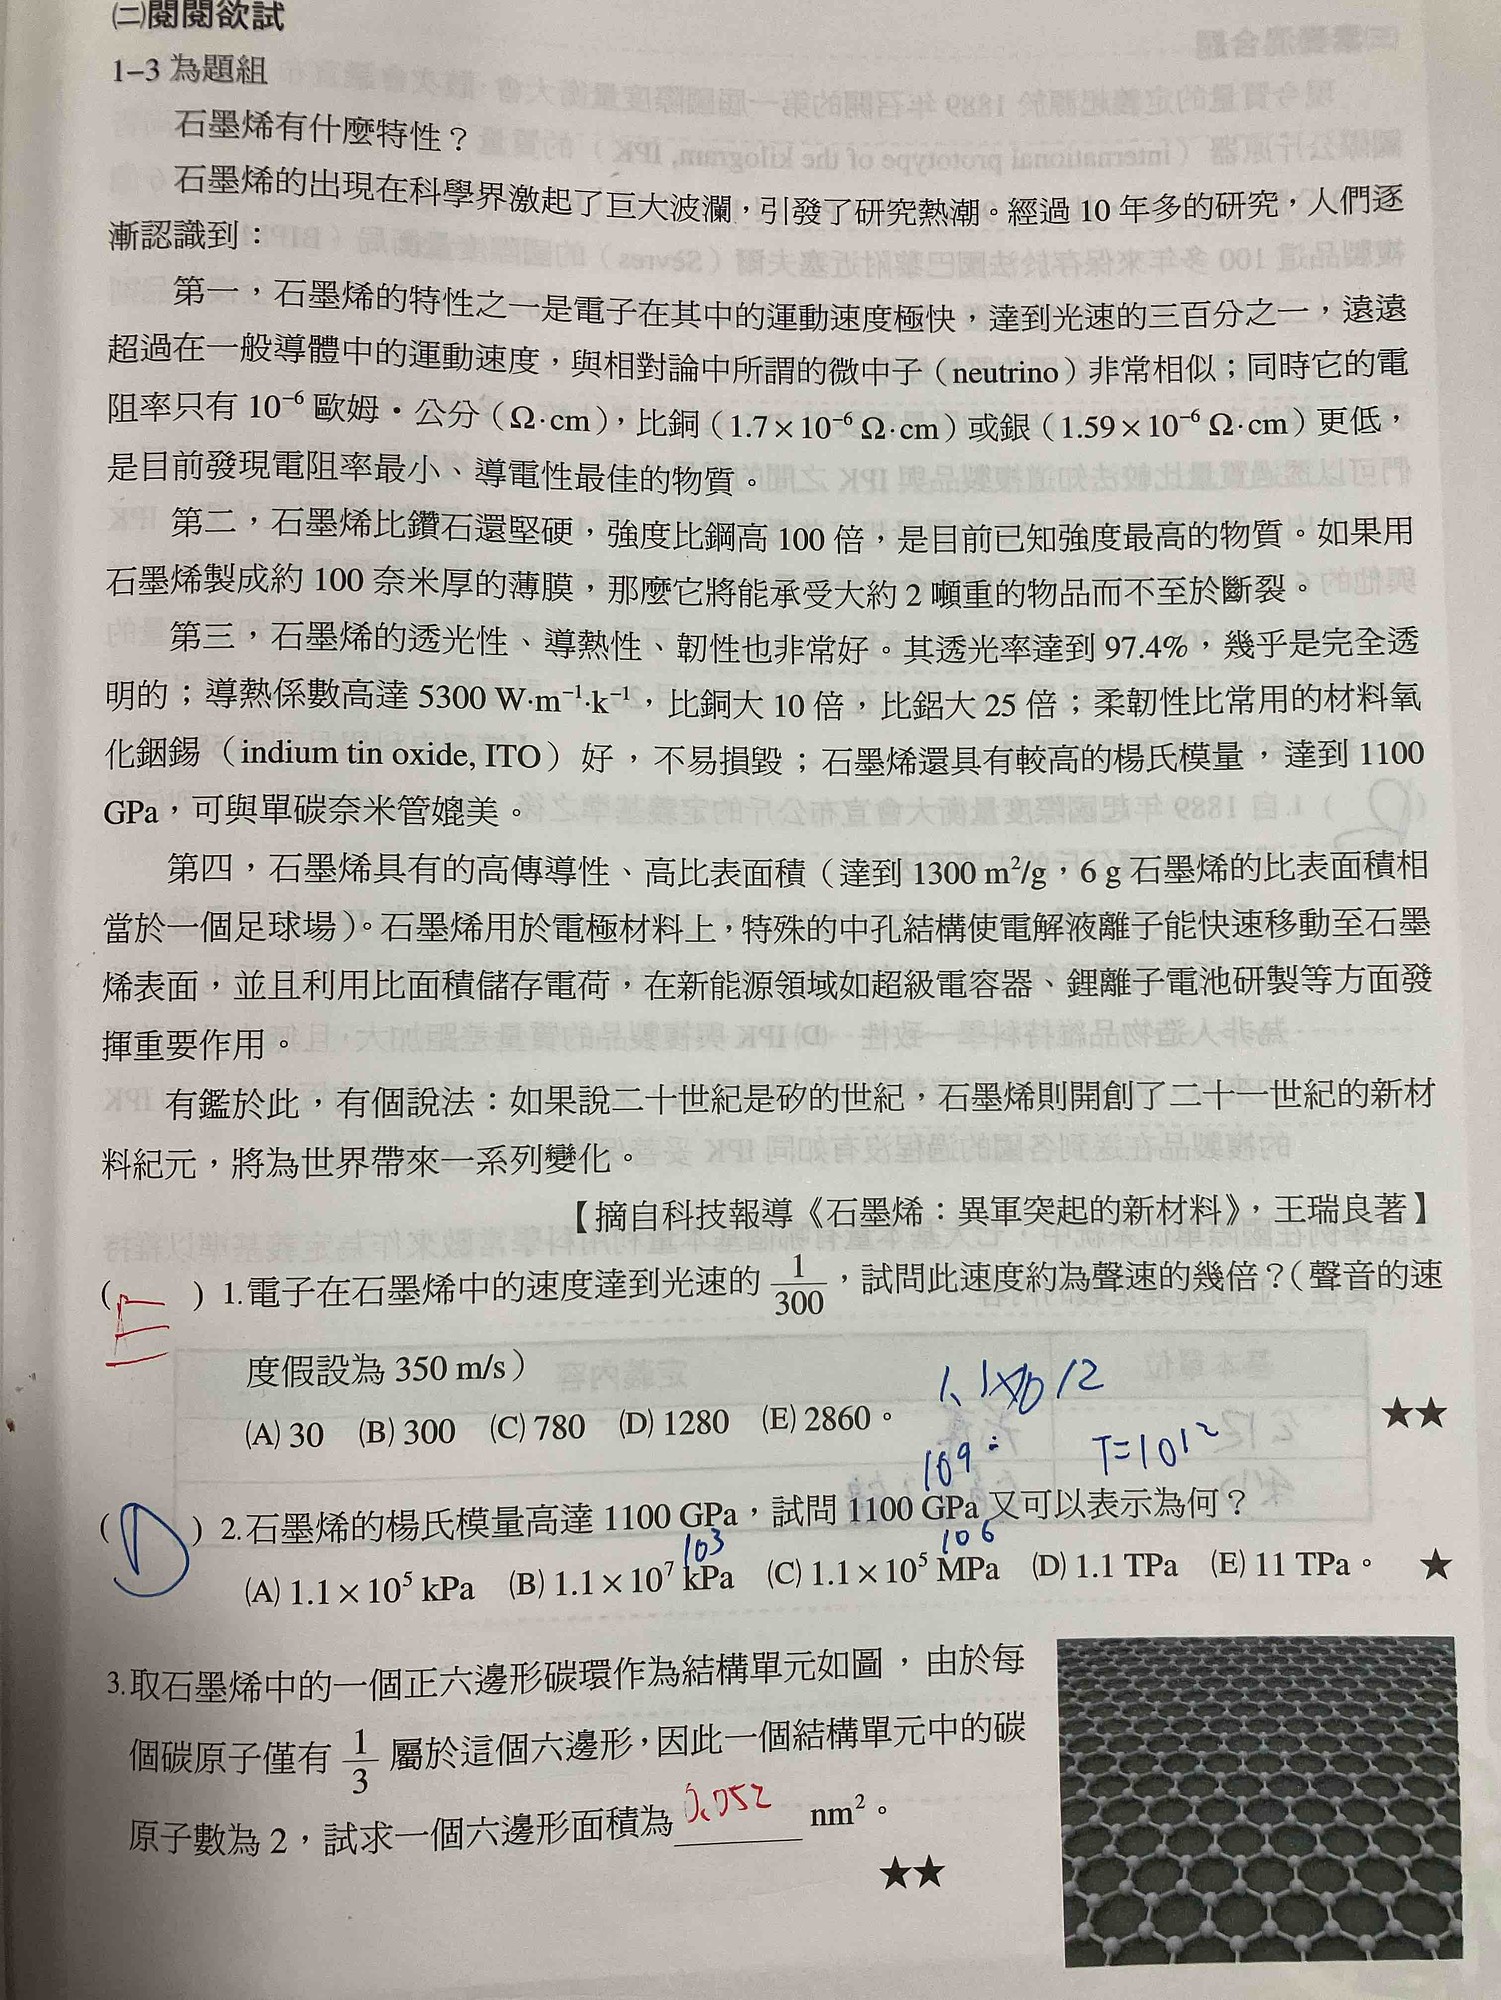 ㈡閱閱欲試
1-3 為題組
石墨烯有什麼特性？
石墨烯的出現在科學界激起了巨大波瀾，引發了研究熱潮。經過 10 年多的研究，人們逐
漸認識到：
第一，石墨烯的特性之一是電子在其中的運動速度極快，達到光速的三百分之一，遠遠
超過在一般導體中的運動速度，與相對論中所謂的微中子（neutrino）非常相似；同時它的電
阻率只有 10⁻⁶ 歐姆・公分（Ω·cm），比銅（1.7×10⁻⁶ Ω·cm）或銀（1.59×10⁻⁶ Ω·cm）更低，
是目前發現電阻率最小、導電性最佳的物質。
第二，石墨烯比鑽石還堅硬，強度比鋼高 100 倍，是目前已知強度最高的物質。如果用
石墨烯製成約 100 奈米厚的薄膜，那麼它將能承受大約 2 噸重的物品而不至於斷裂。
第三，石墨烯的透光性、導熱性、韌性也非常好。其透光率達到 97.4%，幾乎是完全透
明的；導熱係數高達 5300 W·m⁻¹·k⁻¹，比銅大 10 倍，比鋁大 25 倍；柔韌性比常用的材料氧
化銦錫（indium tin oxide, ITO）好，不易損毀；石墨烯還具有較高的楊氏模量，達到 1100
GPa，可與單碳奈米管媲美。
第四，石墨烯具有的高傳導性、高比表面積（達到 1300 m²/g，6 g 石墨烯的比表面積相
當於一個足球場）。石墨烯用於電極材料上，特殊的中孔結構使電解液離子能快速移動至石墨
烯表面，並且利用比面積儲存電荷，在新能源領域如超級電容器、鋰離子電池研製等方面發
揮重要作用。
有鑑於此，有個說法：如果說二十世紀是矽的世紀，石墨烯則開創了二十一世紀的新材
料紀元，將為世界帶來一系列變化。
【摘自科技報導《石墨烯：異軍突起的新材料》，王瑞良著】
( E ) 1.電子在石墨烯中的速度達到光速的 1/300，試問此速度約為聲速的幾倍？（聲音的速
度假設為 350 m/s）
(A) 30 (B) 300 (C) 780 (D) 1280 (E) 2860。 ★★
1.1×10 12
10⁹ T=10¹²
( D ) 2.石墨烯的楊氏模量高達 1100 GPa，試問 1100 GPa 又可以表示為何？
10³ 10⁶
(A) 1.1×10⁵ kPa (B) 1.1×10⁷ kPa (C) 1.1×10⁵ MPa (D) 1.1 TPa (E) 11 TPa。 ★
3.取石墨烯中的一個正六邊形碳環作為結構單元如圖，由於每
個碳原子僅有 1/3 屬於這個六邊形，因此一個結構單元中的碳
原子數為 2，試求一個六邊形面積為 0.052 nm²。
★★